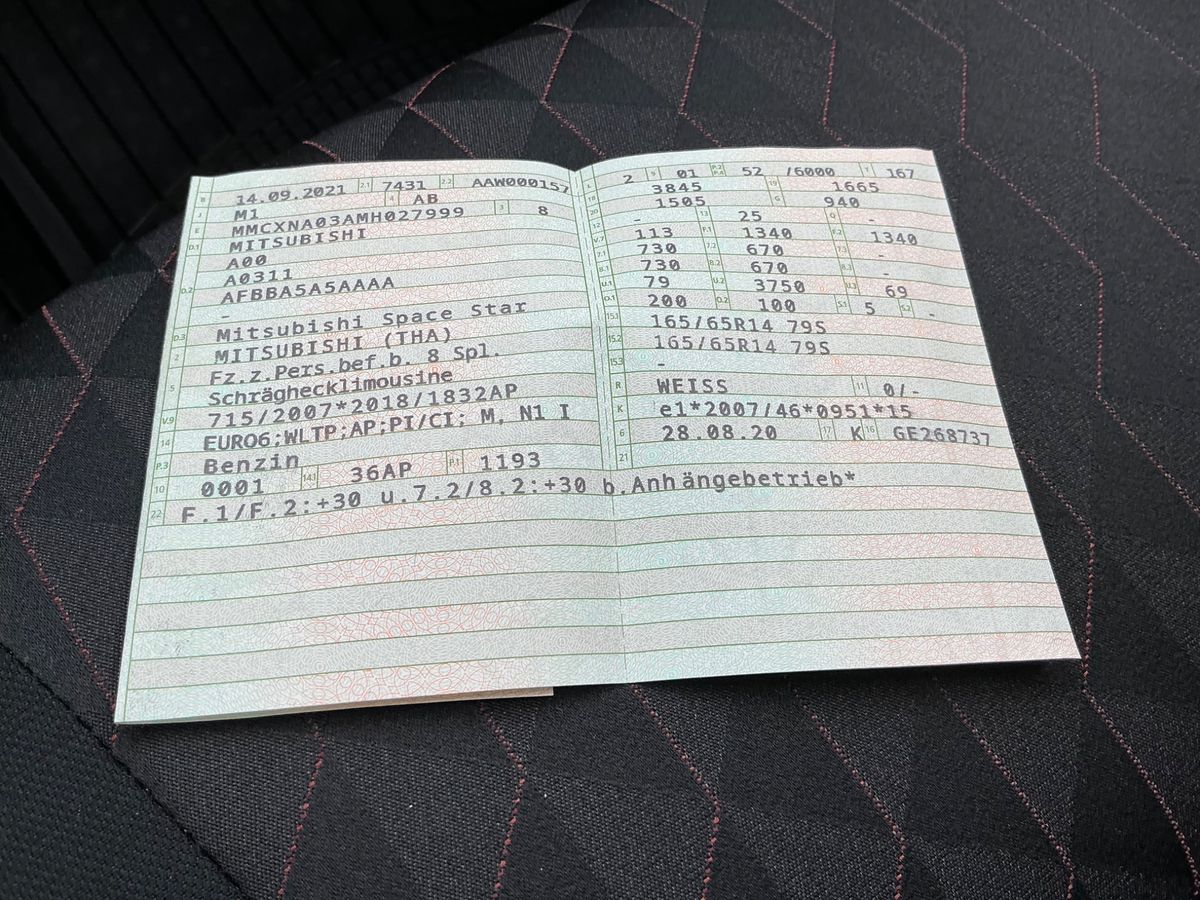 B 14.09.2021 2.1 7431 2.2 AAW000157
J M1 4 AB
E MMCXNA03AMH027999 3 8
D.1 MITSUBISHI
A00
D.2 A0311
AFBBA5A5AAAA
-
D.3 Mitsubishi Space Star
2 MITSUBISHI (THA)
Fz.z.Pers.bef.b. 8 Spl.
5 Schräghecklimousine
V.9 715/2007*2018/1832AP
14 EURO6;WLTP;AP;PI/CI; M, N1 I
P.3 Benzin
10 0001 14.1 36AP P.1 1193
22 F.1/F.2:+30 u.7.2/8.2:+30 b.Anhängebetrieb*
L 2 9 01 P.2 P.4 52 /6000 T 167
18 3845 19 1665
20 1505 G 940
12 - 13 25 Q -
V.7 113 F.1 1340 F.2 1340
7.1 730 7.2 670 7.3 -
8.1 730 8.2 670 8.3 -
U.1 79 U.2 3750 U.3 69
O.1 200 O.2 100 S.1 5 S.2 -
15.1 165/65R14 79S
15.2 165/65R14 79S
15.3 -
R WEISS 11 0/-
K e1*2007/46*0951*15
6 28.08.20 17 K 16 GF268737
21